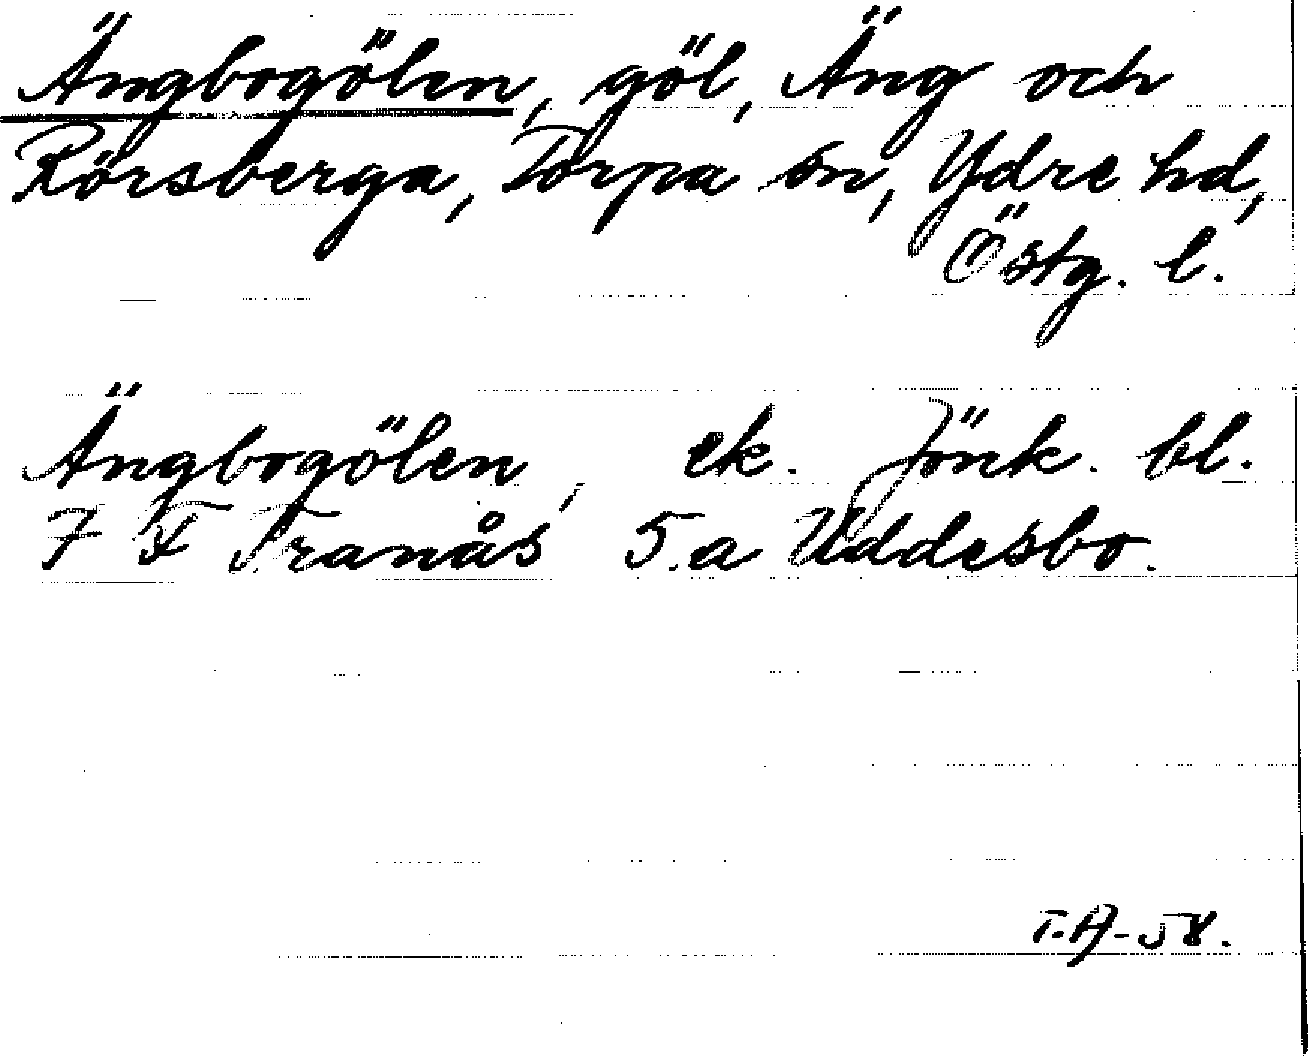 Ängbogölen, göl, Äng och
Rörsberga, Torpa sn, Ydre hd,
Östg. l.
Ängbogölen, ek. Jönk. bl.
7 F Tranås 5.a Uddesbo.
T.A-58.